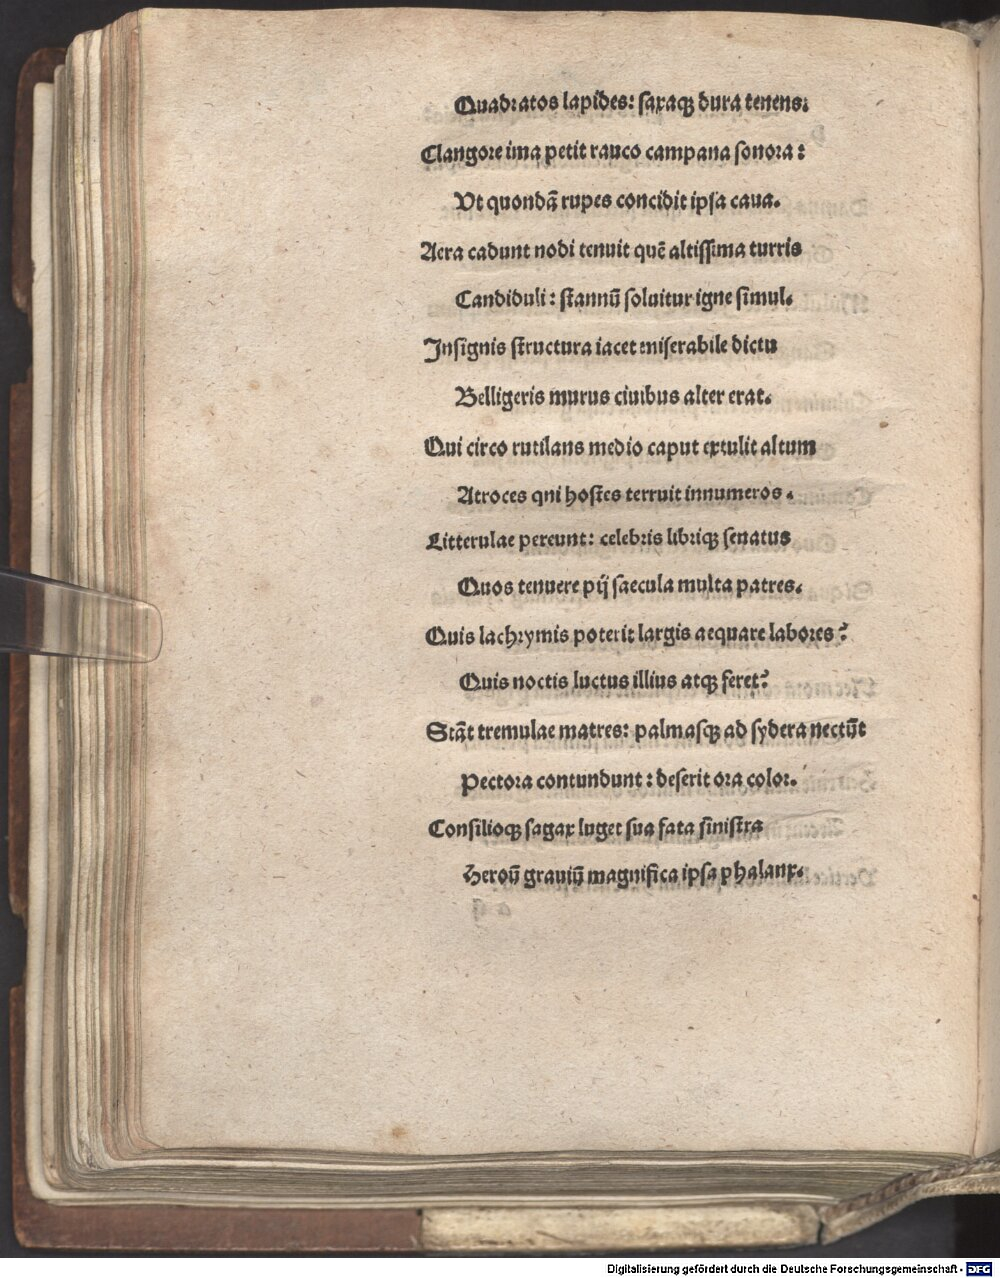 Quadratos lapides: saxaqꝫ dura tenens.
Clangore ima petit rauco campana sonora:
Vt quondã rupes concidit ipsa caua.
Aera cadunt nodi tenuit quẽ altissima turris
Candiduli: stannũ soluitur igne simul.
Insignis structura iacet miserabile dictu
Belligeris murus ciuibus alter erat.
Qui circo rutilans medio caput extulit altum
Atroces qni hostes terruit innumeros.
Litterulae pereunt: celebris libriqꝫ senatus
Quos tenuere pij saecula multa patres.
Quis lachrymis poterit largis aequare labores?
Quis noctis luctus illius atqꝫ feret?
Stãt tremulae matres: palmasqꝫ ad sydera nectũt
Pectora contundunt: deserit ora color.
Consilioqꝫ sagax luget sua fata sinistra
Heroũ grauiũ magnifica ipsa phalanx.
Digitalisierung gefördert durch die Deutsche Forschungsgemeinschaft - DFG